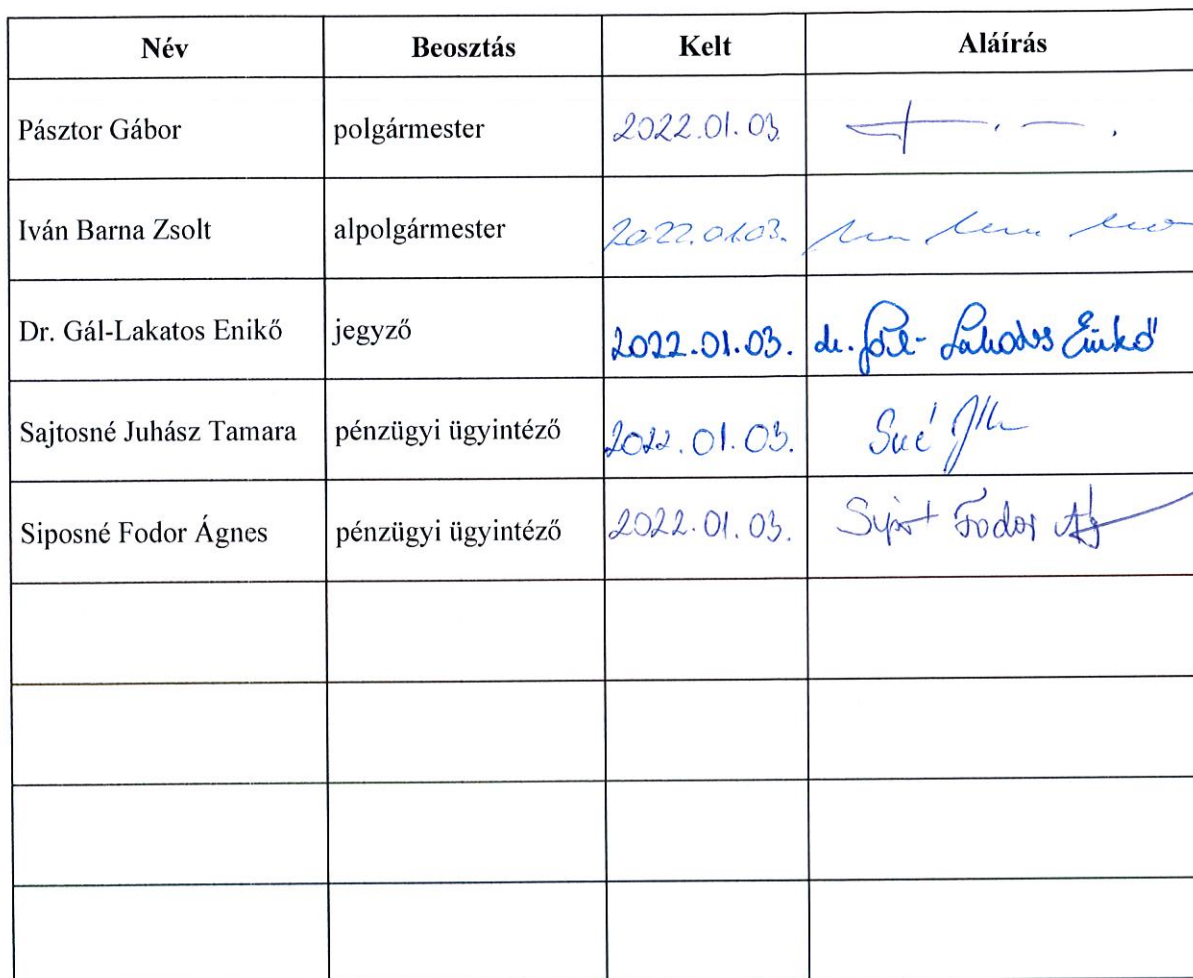 Név Beosztás Kelt Aláírás
Pásztor Gábor polgármester 2022.01.03.
Iván Barna Zsolt alpolgármester 2022.01.03.
Dr. Gál-Lakatos Enikő jegyző 2022.01.03. dr. Gál-Lakatos Enikő
Sajtosné Juhász Tamara pénzügyi ügyintéző 2022.01.03.
Siposné Fodor Ágnes pénzügyi ügyintéző 2022.01.03. Fodor